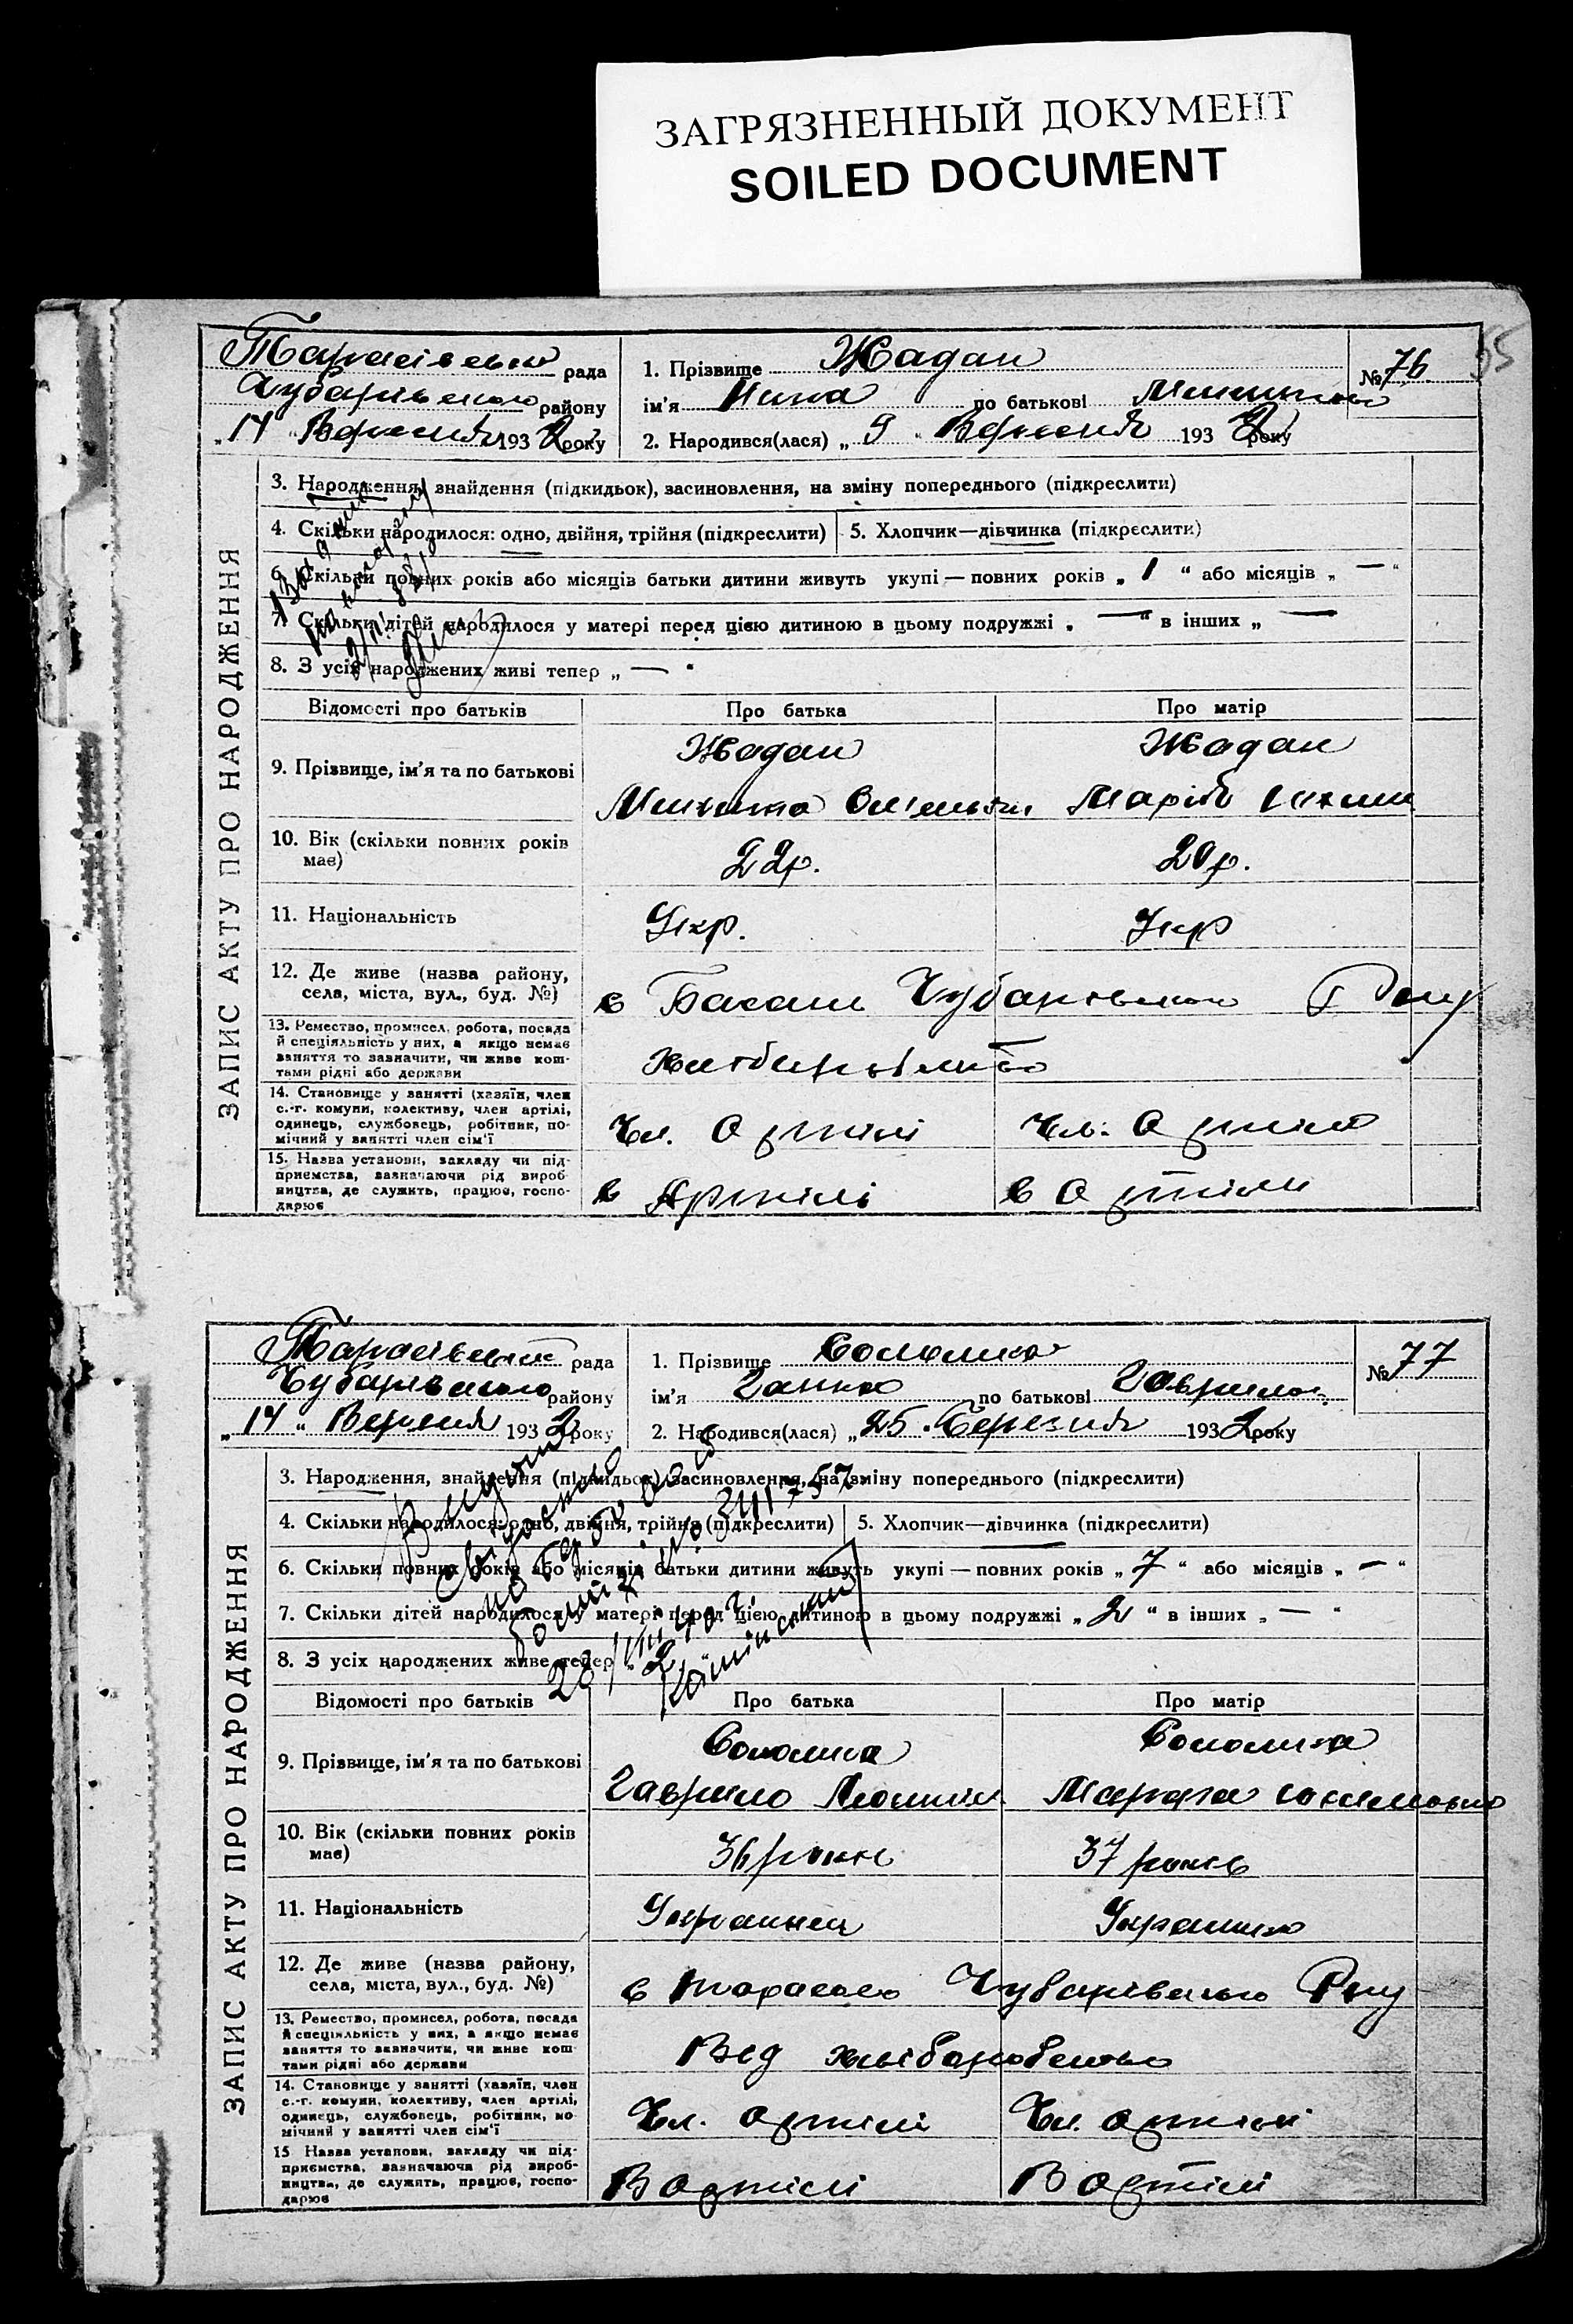 ЗАГРЯЗНЕННЫЙ ДОКУМЕНТ
SOILED DOCUMENT
55
ЗАПИС АКТУ ПРО НАРОДЖЕННЯ
Тарасівська рада
Чубарівського району
„14“ Вересня 1932 року
1. Прізвище Жадан
№ 76
ім'я Нина по батькові
2. Народився(лася) „9“ Вересня 1932 року
3. Народження, знайдення (підкидьок), засиновлення, на зміну попереднього (підкреслити)
4. Скільки народилося: одно, двійня, трійня (підкреслити)
5. Хлопчик—дівчинка (підкреслити)
6. Скільки повних років або місяців батьки дитини живуть укупі — повних років „1“ або місяців „—“
7. Скільки дітей народилося у матері перед цією дитиною в цьому подружжі „—“ в інших „—
8. З усіх народжених живі тепер „—“
Відомості про батьків
Про батька
Про матір
9. Прізвище, ім'я та по батькові
Жадан
Микита Омельян
Жадан
Марія
10. Вік (скільки повних років має)
22р.
20р.
11. Національність
Укр.
Укр
12. Де живе (назва району,
села, міста, вул., буд. №)
с Басань Чубарівського Р-ну
13. Ремество, промисел, робота, посада
й спеціяльність у них, а якщо немає
заняття то зазначити, чи живе кош-
тами рідні або держави
14. Становище у занятті (хазяїн, член
с.-г. комуни, колективу, член артілі,
одинець, службовець, робітник, по-
мічний у занятті член сім'ї
Чл. Артілі
Чл. Артілі
15. Назва установи, закладу чи під-
приємства, зазначаючи рід вироб-
ництва, де служить, працює, госпо-
дарює
в Артілі
в Артіли
ЗАПИС АКТУ ПРО НАРОДЖЕННЯ
Тарасівська рада
Чубарівського району
„14“ Вересня 1932 року
1. Прізвище Соломка
№ 77
ім'я Ганна по батькові Гаврилов.
2. Народився(лася) „25“ Березня 1932 року
3. Народження, знайдення (підкидьок), засиновлення, на зміну попереднього (підкреслити)
4. Скільки народилося: одно, двійня, трійня (підкреслити)
5. Хлопчик—дівчинка (підкреслити)
6. Скільки повних років або місяців батьки дитини живуть укупі — повних років „7“ або місяців „—“
7. Скільки дітей народилося у матері перед цією дитиною в цьому подружжі „2“ в інших „—“
8. З усіх народжених живе тепер „2
Відомості про батьків
Про батька
Про матір
9. Прізвище, ім'я та по батькові
Соломка
Гаврило
Соломка
Марфа
10. Вік (скільки повних років має)
36 років
37 років
11. Національність
Українец
Українка
12. Де живе (назва району,
села, міста, вул., буд. №)
с Тарасівка Чубарівського Р-ну
13. Ремество, промисел, робота, посада
й спеціяльність у них, а якщо немає
заняття то зазначити, чи живе кош-
тами рідні або держави
Від хліборобства
14. Становище у занятті (хазяїн, член
с.-г. комуни, колективу, член артілі,
одинець, службовець, робітник, по-
мічний у занятті член сім'ї
Чл. артілі
Чл. артілі
15 Назва установи, закладу чи під-
приємства, зазначаюча рід вироб-
ництва, де служить, працює, госпо-
дарює
В артілі
В артілі